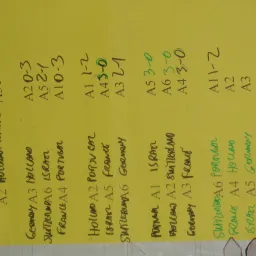 A2 HOLLAND
GERMANY A3 HOLLAND A2 0-3
SWITZERLAND A6 ISRAEL A5 2-1
FRANCE A4 PORTUGAL A1 0-3
HOLLAND A2 PORTUGAL A1 1-2
ISRAEL A5 FRANCE A4 3-0
SWITZERLAND A6 GERMANY A3 2-1
PORTUGAL A1 ISRAEL A5 3-0
HOLLAND A2 SWITZERLAND A6 3-0
GERMANY A3 FRANCE A4 3-0
SWITZERLAND A6 PORTUGAL A1 1-2
FRANCE A4 HOLLAND A2
ISRAEL A5 GERMANY A3